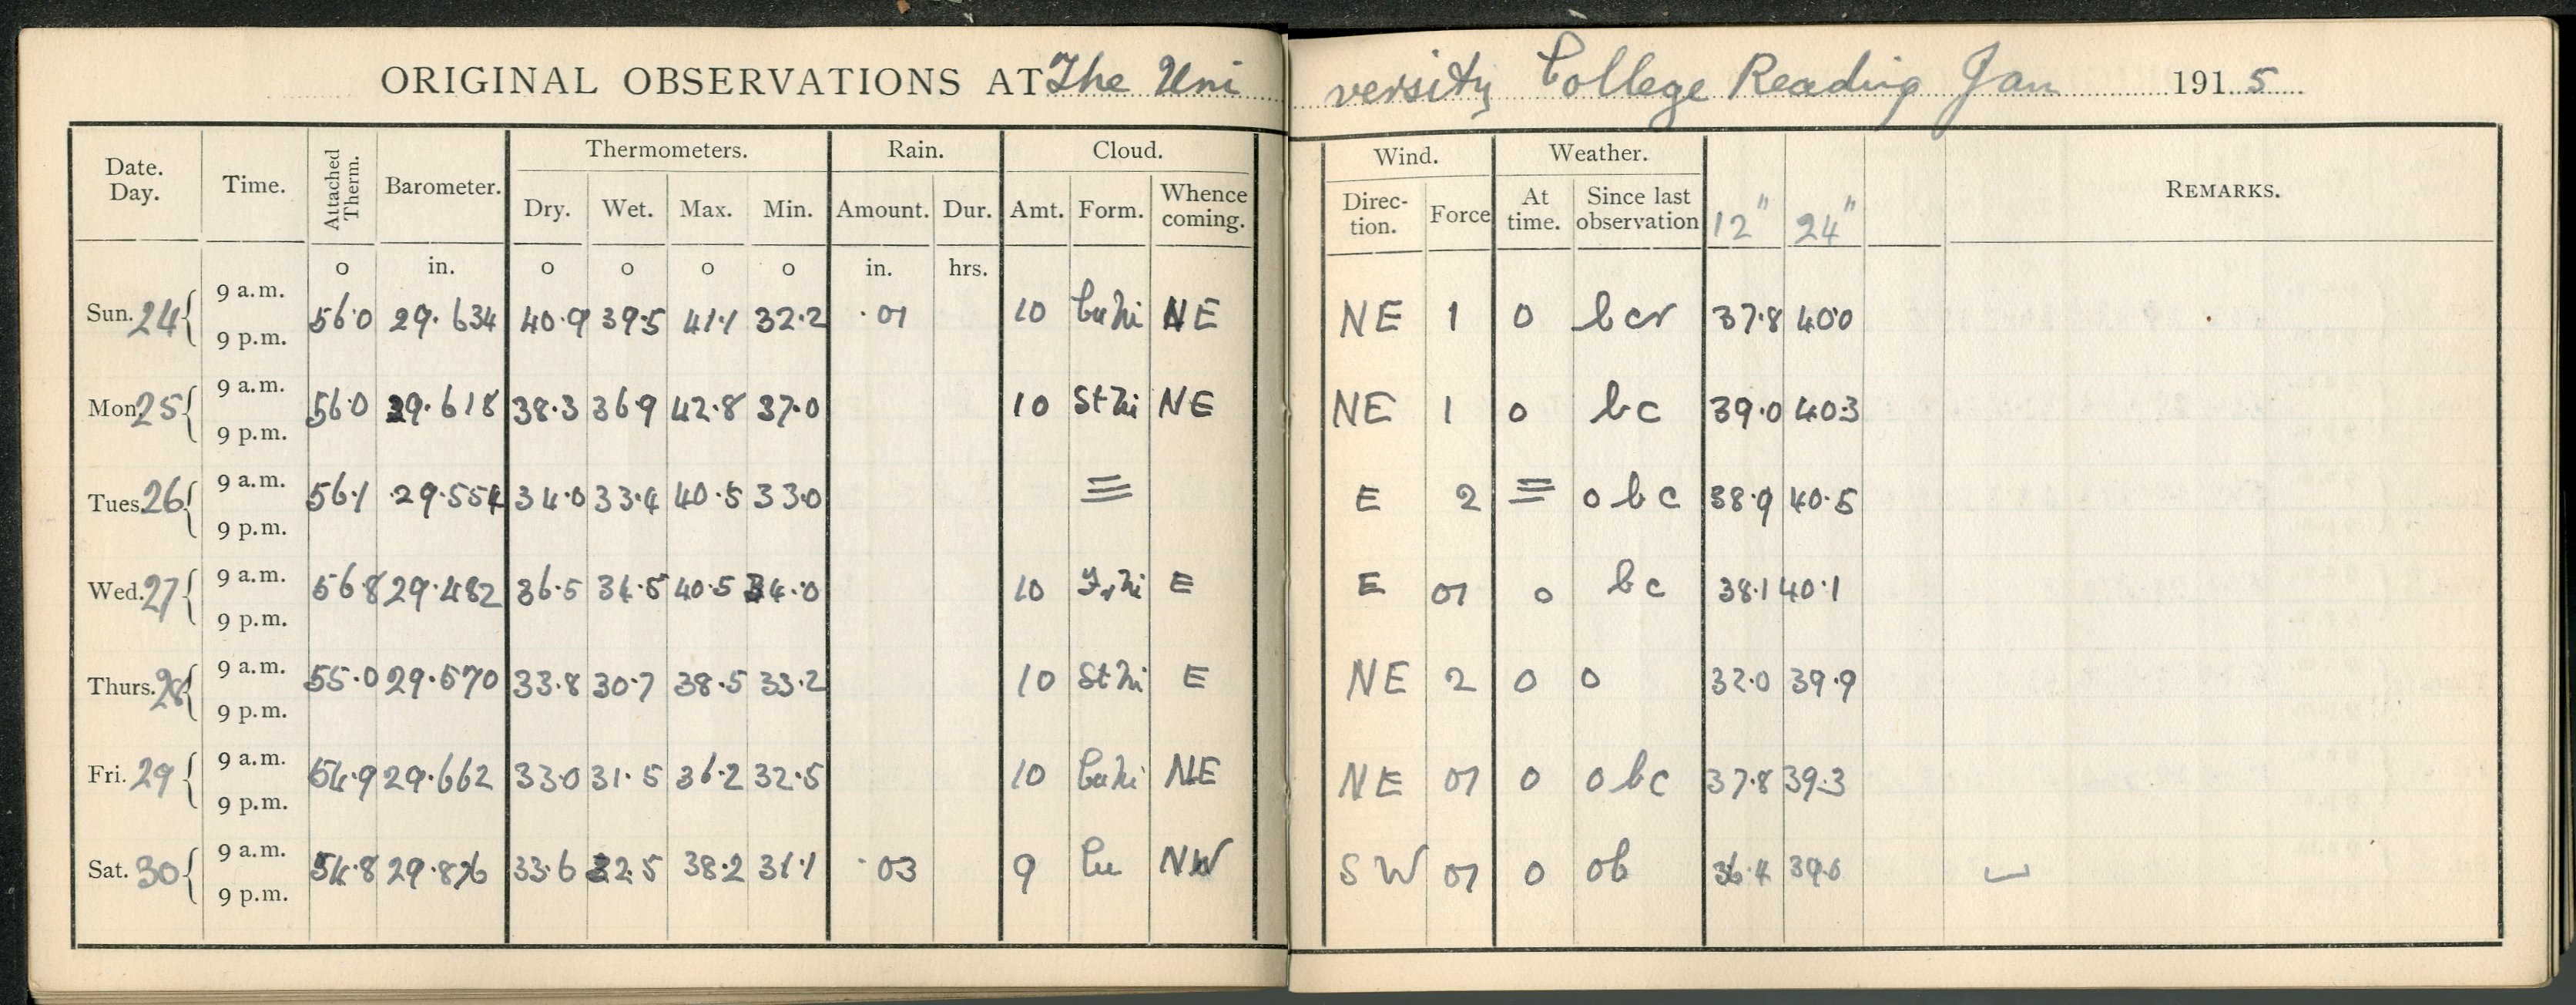 ORIGINAL OBSERVATIONS AT The University College Reading Jan 1915
Date. Day. Time. Attached Therm. Barometer. Thermometers. Rain. Cloud. Wind. Weather. REMARKS.
Dry. Wet. Max. Min. Amount. Dur. Amt. Form. Whence coming. Direc- tion. Force At time. Since last observation 12" 24"
o in. o o o o in. hrs.
9 a.m.
Sun. 24 56.0 29.634 40.9 39.5 41.1 32.2 .01 10 CuNi NE NE 1 0 bcr 37.8 40.0
9 p.m.
9 a.m.
Mon. 25 56.0 29.618 38.3 36.9 42.8 37.0 10 StNi NE NE 1 0 bc 39.0 40.3
9 p.m.
9 a.m.
Tues. 26 56.1 29.554 34.0 33.4 40.5 33.0 ≡ E 2 ≡ o b c 38.9 40.5
9 p.m.
9 a.m.
Wed. 27 56.8 29.482 36.5 34.5 40.5 34.0 10 FrNi E E 01 o bc 38.1 40.1
9 p.m.
9 a.m.
Thurs. 28 55.0 29.570 33.8 30.7 38.5 33.2 10 StNi E NE 2 0 o 32.0 39.9
9 p.m.
9 a.m.
Fri. 29 54.9 29.662 33.0 31.5 36.2 32.5 10 CuNi NE NE 01 0 obc 37.8 39.3
9 p.m.
9 a.m.
Sat. 30 54.8 29.876 33.6 32.5 38.2 31.1 .03 9 Cu NW SW 01 0 ob 36.4 39.0
9 p.m.